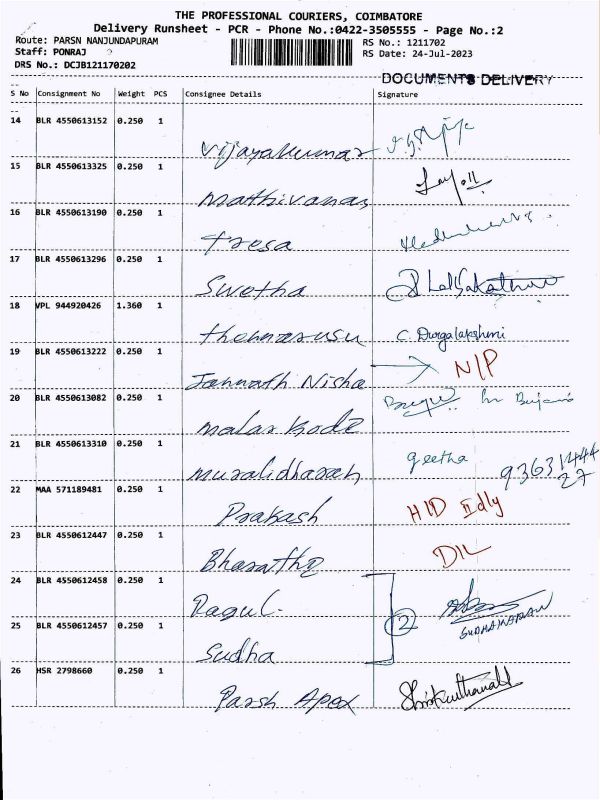 THE PROFESSIONAL COURIERS, COIMBATORE
Delivery Runsheet - PCR - Phone No.:0422-3505555 - Page No.:2
Route: PARSN NANJUNDAPURAM
RS No.: 1211702
Staff: PONRAJ
RS Date: 24-Jul-2023
DRS No.: DCJB121170202
DOCUMENTS DELIVERY
S No Consignment No Weight PCS Consignee Details Signature
14 BLR 4550613152 0.250 1
Vijayakumar
15 BLR 4550613325 0.250 1
Mathivanan
16 BLR 4550613190 0.250 1
Tresa
17 BLR 4550613296 0.250 1
Swetha
18 VPL 944920426 1.360 1
C. Durgalakshmi
19 BLR 4550613222 0.250 1
Jannath Nisha N/P
20 BLR 4550613082 0.250 1
Malar Kode
21 BLR 4550613310 0.250 1
Muralidharan geetha
22 MAA 571189481 0.250 1
Prakash
23 BLR 4550612447 0.250 1
D/L
24 BLR 4550612458 0.250 1
Ragul
2
25 BLR 4550612457 0.250 1
Sudha
26 HSR 2798660 0.250 1
Parsh Apex